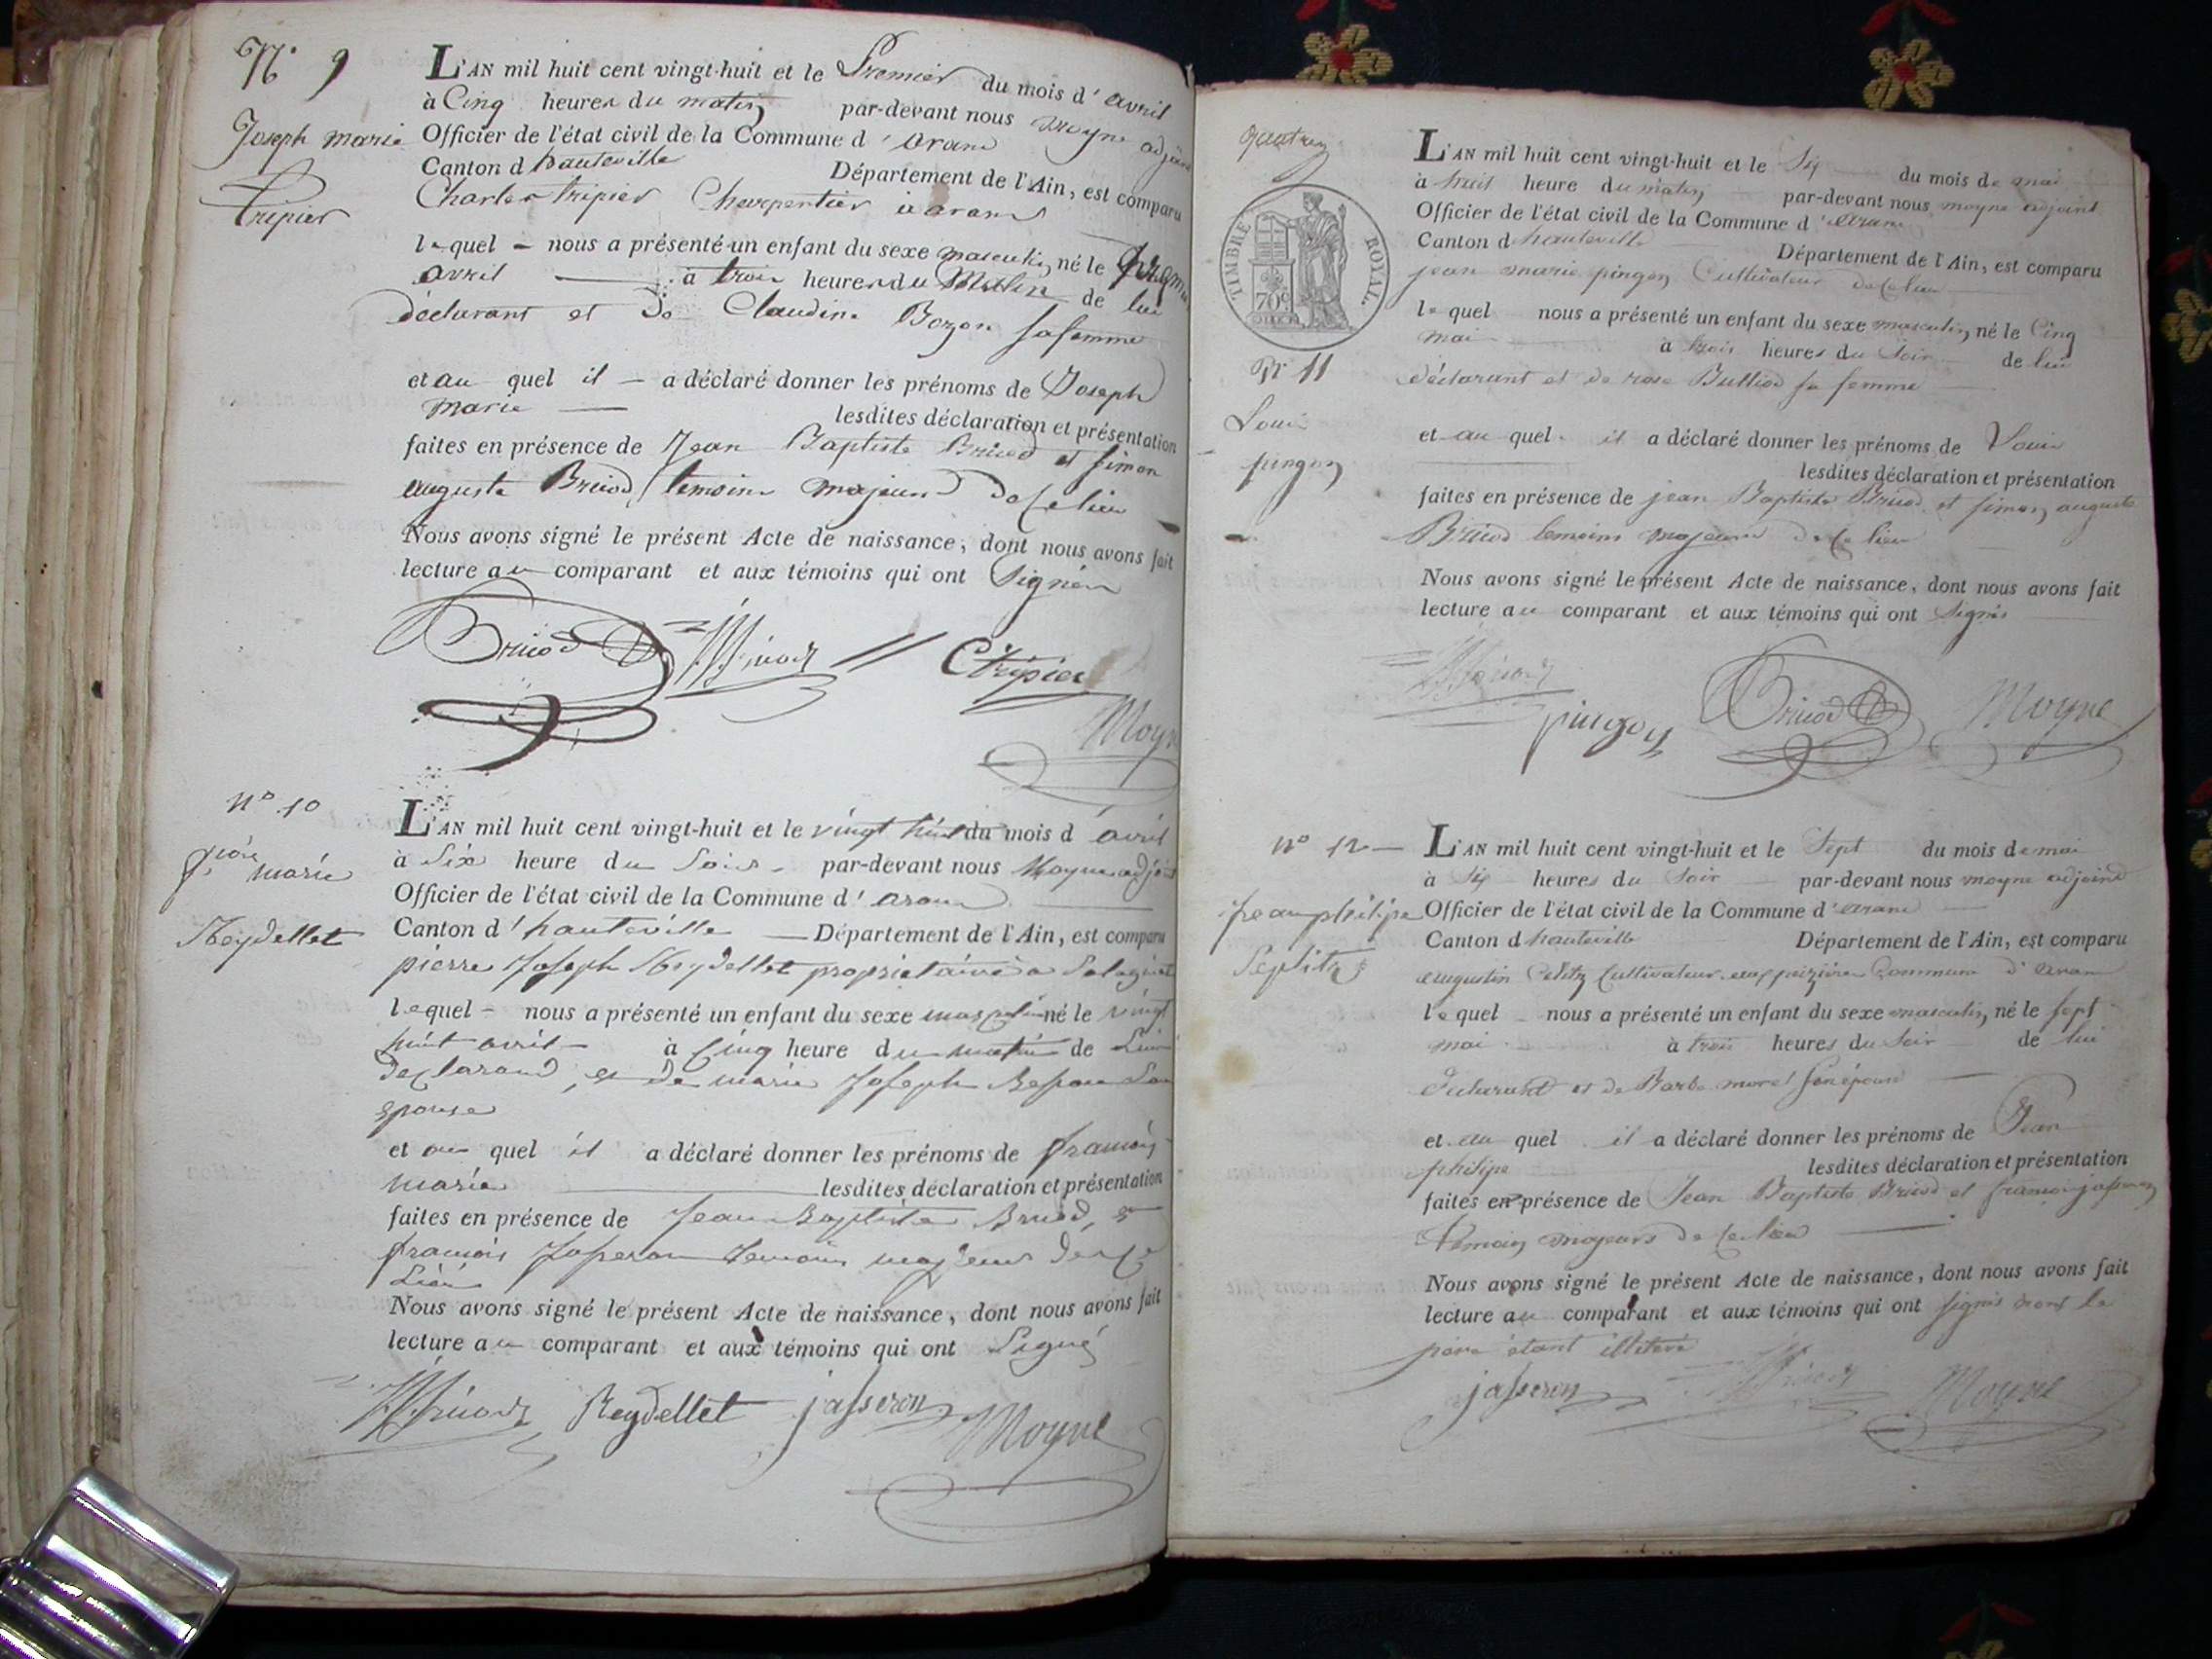 N° 9
Joseph marie
tripier
L'AN mil huit cent vingt-huit et le Premier du mois d'avril
à Cinq heures du matin par-devant nous moyne adjoint
Officier de l'état civil de la Commune d'aranc
Canton d hauteville Département de l'Ain, est comparu
Charles tripier Charpentier à aranc
le quel - nous a présenté un enfant du sexe masculin né le premier
avril à trois heures du Matin de lui
déclarant et de Claudine Bozon sa femme
et au quel il - a déclaré donner les prénoms de Joseph
marie lesdites déclaration et présentation
faites en présence de Jean Baptiste Bruod et simon
auguste Bruod témoins majeurs de Ce lieu
Nous avons signé le présent Acte de naissance, dont nous avons fait
lecture au comparant et aux témoins qui ont Signés
Bruod JBBruod Ctripier
Moyne
n° 10
fçois marie
Reydellet
L'AN mil huit cent vingt-huit et le vingt huit du mois d avril
à Six heure du Soir par-devant nous Moyne adjoint
Officier de l'état civil de la Commune d'aranc
Canton d'hauteville Département de l'Ain, est comparu
pierre Joseph Reydellet proprietaire a
le quel - nous a présenté un enfant du sexe masculin né le vingt
huit avril à Cinq heure du matin de Lui
declarand, et de marie Joseph Son
epouse
et au quel il a déclaré donner les prénoms de françois
marie lesdites déclaration et présentation
faites en présence de Jean Baptiste Bruod, et
françois Jasseron temoins majeurs de Ce
Lieu
Nous avons signé le présent Acte de naissance, dont nous avons fait
lecture au comparant et aux témoins qui ont Signé
JBBruod Reydellet jasseron Moyne
TIMBRE ROYAL
70c
N° 11
Louis
pingon
L'AN mil huit cent vingt-huit et le Six du mois de mai
à huit heure du matin par-devant nous moyne adjoint
Officier de l'état civil de la Commune d'aranc
Canton d hauteville Département de l'Ain, est comparu
jean marie pingon Cultivateur de Ce lieu
le quel nous a présenté un enfant du sexe masculin né le Cinq
mai à trois heures du Soir de lui
déclarant et de rose Bulliod sa femme
et au quel il a déclaré donner les prénoms de Louis
lesdites déclaration et présentation
faites en présence de jean Baptiste Bruod et simon auguste
Bruod temoins majeurs de Ce lieu
Nous avons signé le présent Acte de naissance, dont nous avons fait
lecture au comparant et aux témoins qui ont Signés
JBBruod pingon Bruod Moyne
n° 12
jean philipe
L'AN mil huit cent vingt-huit et le Sept du mois de mai
à Six heures du Soir par-devant nous moyne adjoint
Officier de l'état civil de la Commune d'aranc
Canton d hauteville Département de l'Ain, est comparu
augustin Cultivateur Commune d'aranc
le quel - nous a présenté un enfant du sexe masculin né le sept
mai à trois heures du Soir de lui
déclarant et de Barbe morel son épouse
et au quel il a déclaré donner les prénoms de Jean
philipe lesdites déclaration et présentation
faites en présence de Jean Baptiste Bruod et françois jasseron
temoins majeurs de Ce lieu
Nous avons signé le présent Acte de naissance, dont nous avons fait
lecture au comparant et aux témoins qui ont signés non le
père étant illitéré
jasseron JBBruod Moyne